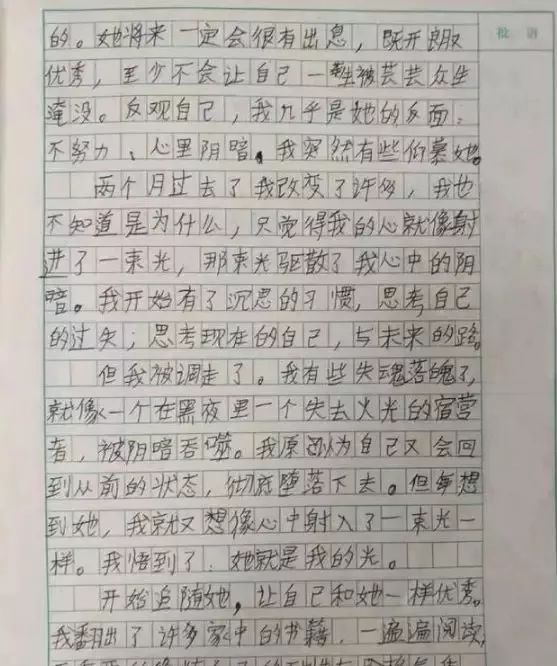 批语
的。她将来一定会很有出息，既开朗又
优秀，至少不会让自己一生被芸芸众生
淹没。反观自己，我几乎是她的反面：
不努力、心里阴暗。我突然有些仰慕她。
两个月过去了我改变了许多，我也
不知道是为什么，只觉得我的心就像射
进了一束光，那束光驱散了我心中的阴
暗。我开始有了沉思的习惯，思考自己
的过失；思考现在的自己，与未来的路。
但我被调走了。我有些失魂落魄了，
就像一个在黑夜里一个失去火光的宿营
者，被阴暗吞噬。我原以为自己又会回
到从前的状态，彻底堕落下去。但每想
到她，我就又想像心中射入了一束光一
样。我悟到了：她就是我的光。
开始追随她，让自己和她一样优秀。
我翻出了许多家中的书籍，一遍遍阅读，